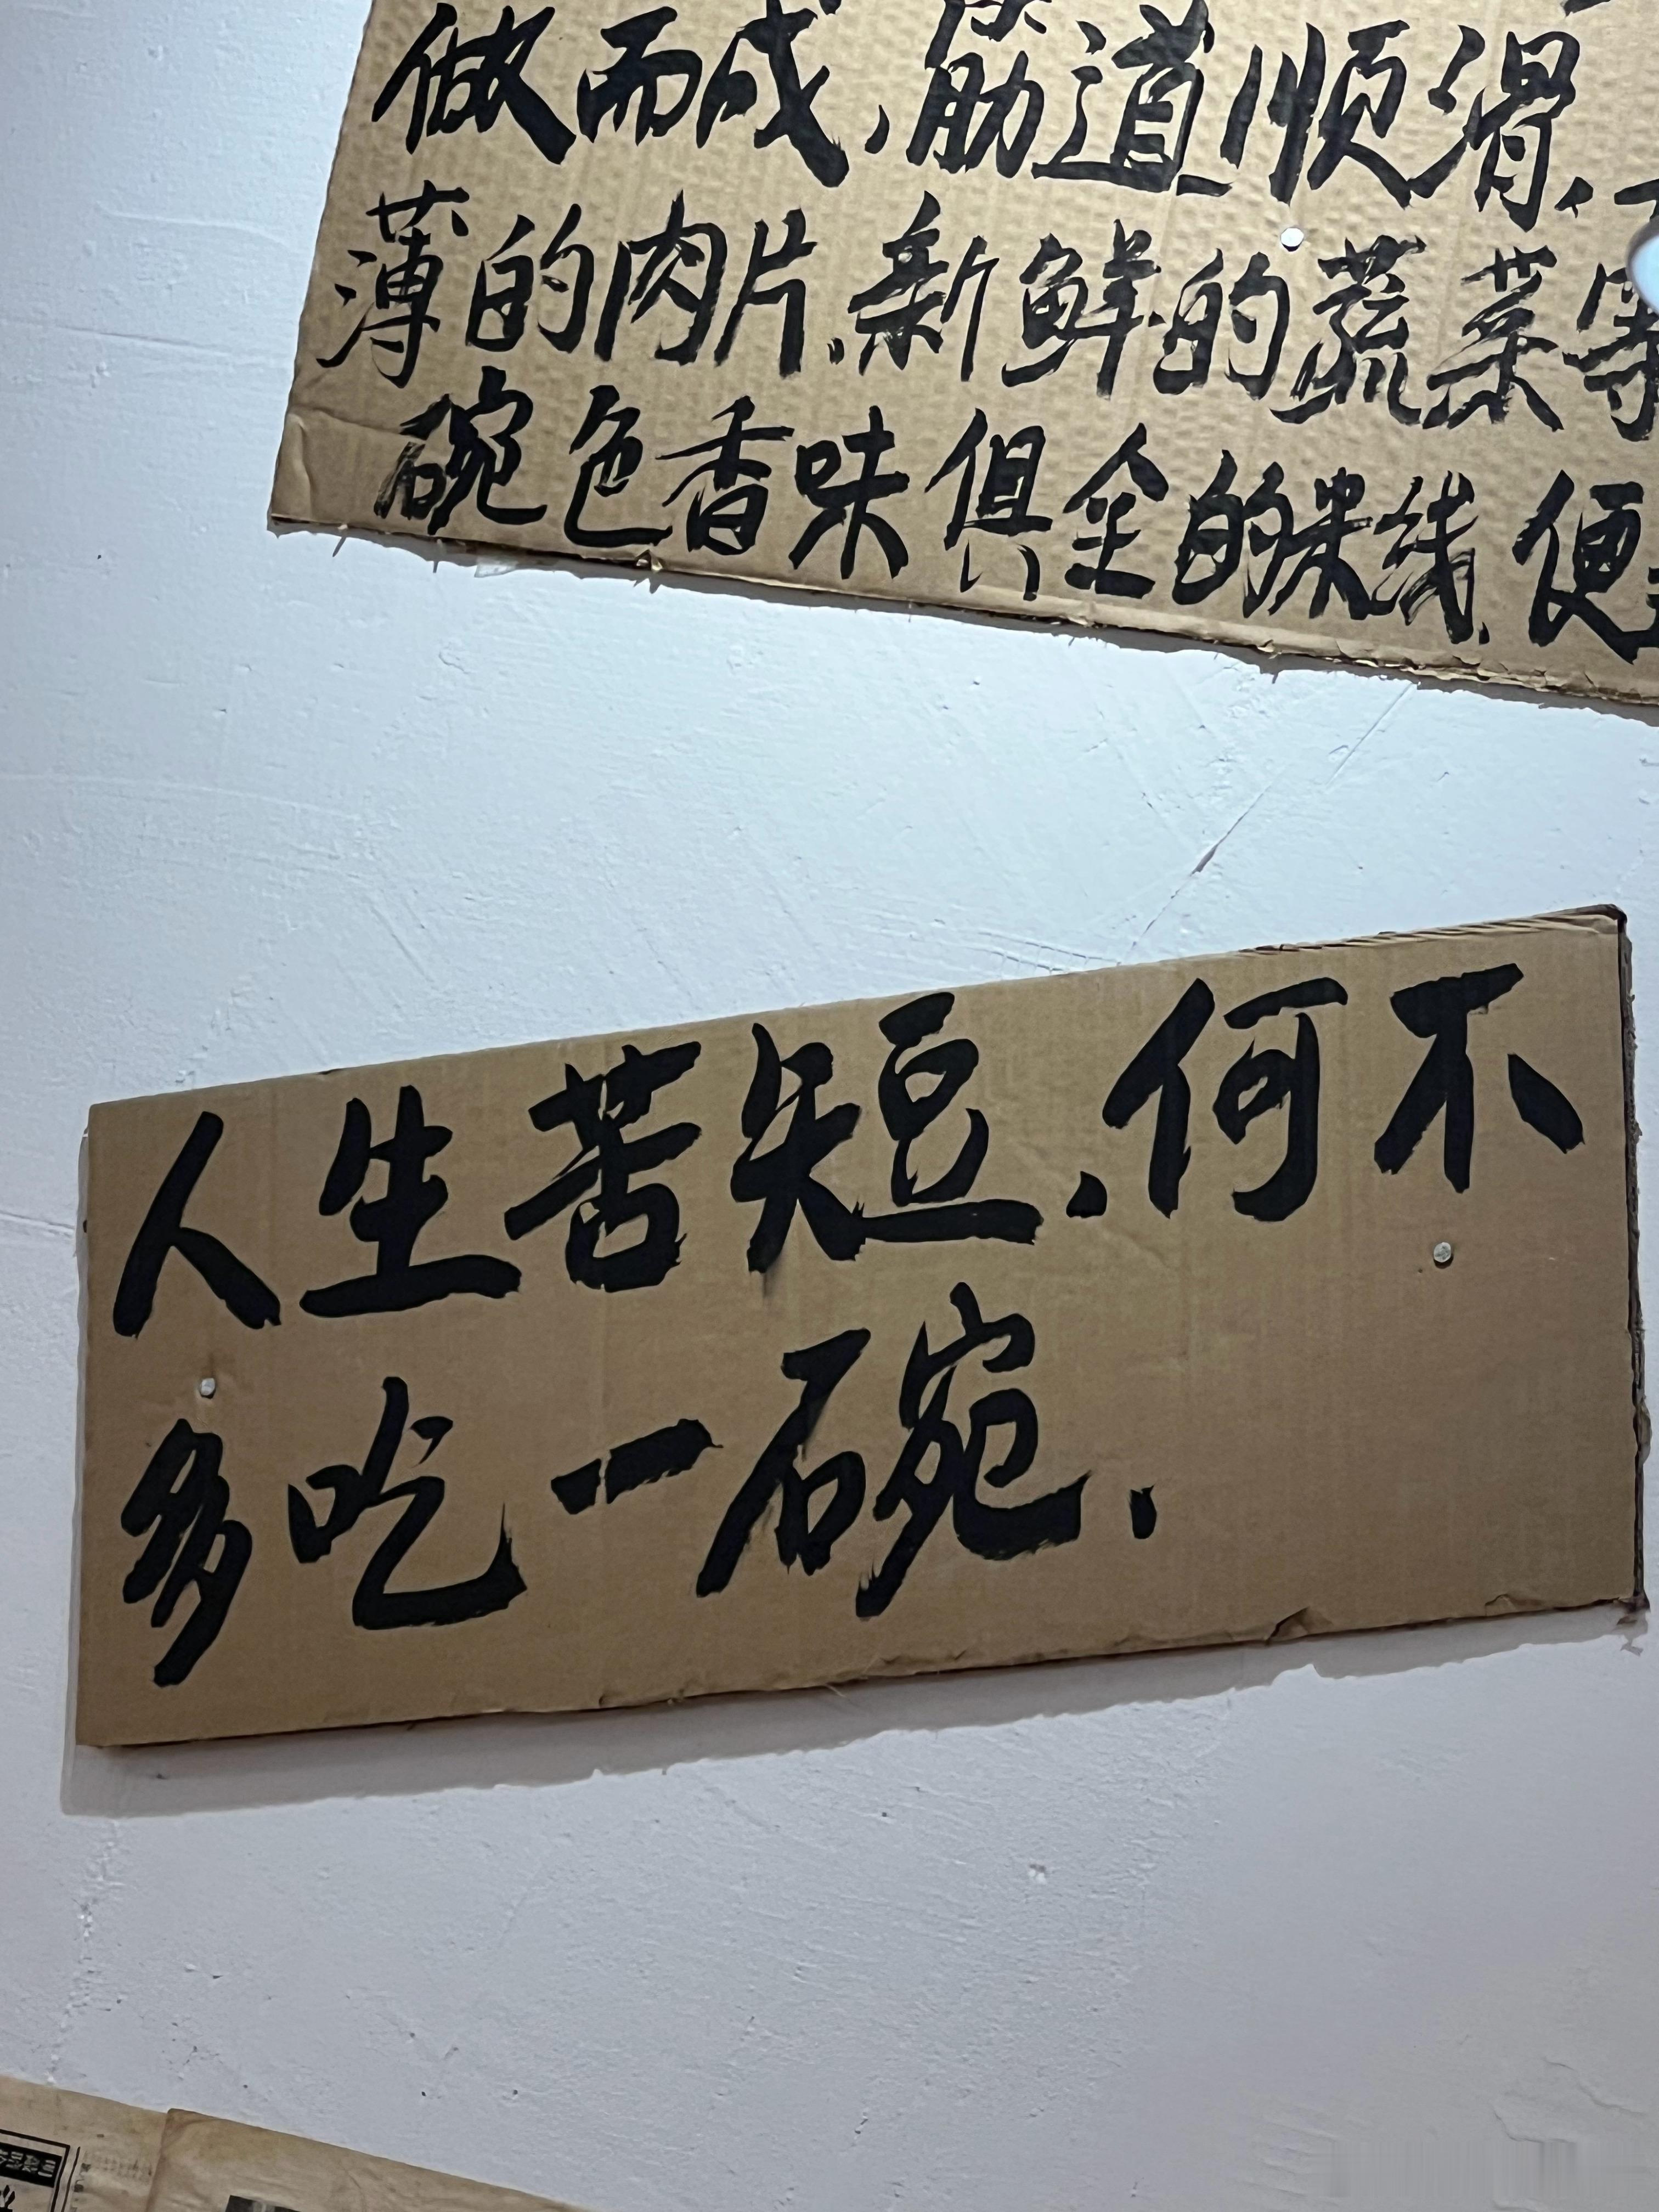 做而成，筋道顺滑，
薄的肉片，新鲜的蔬菜等
碗色香味俱全的米线，便
人生苦短，何不
多吃一碗．